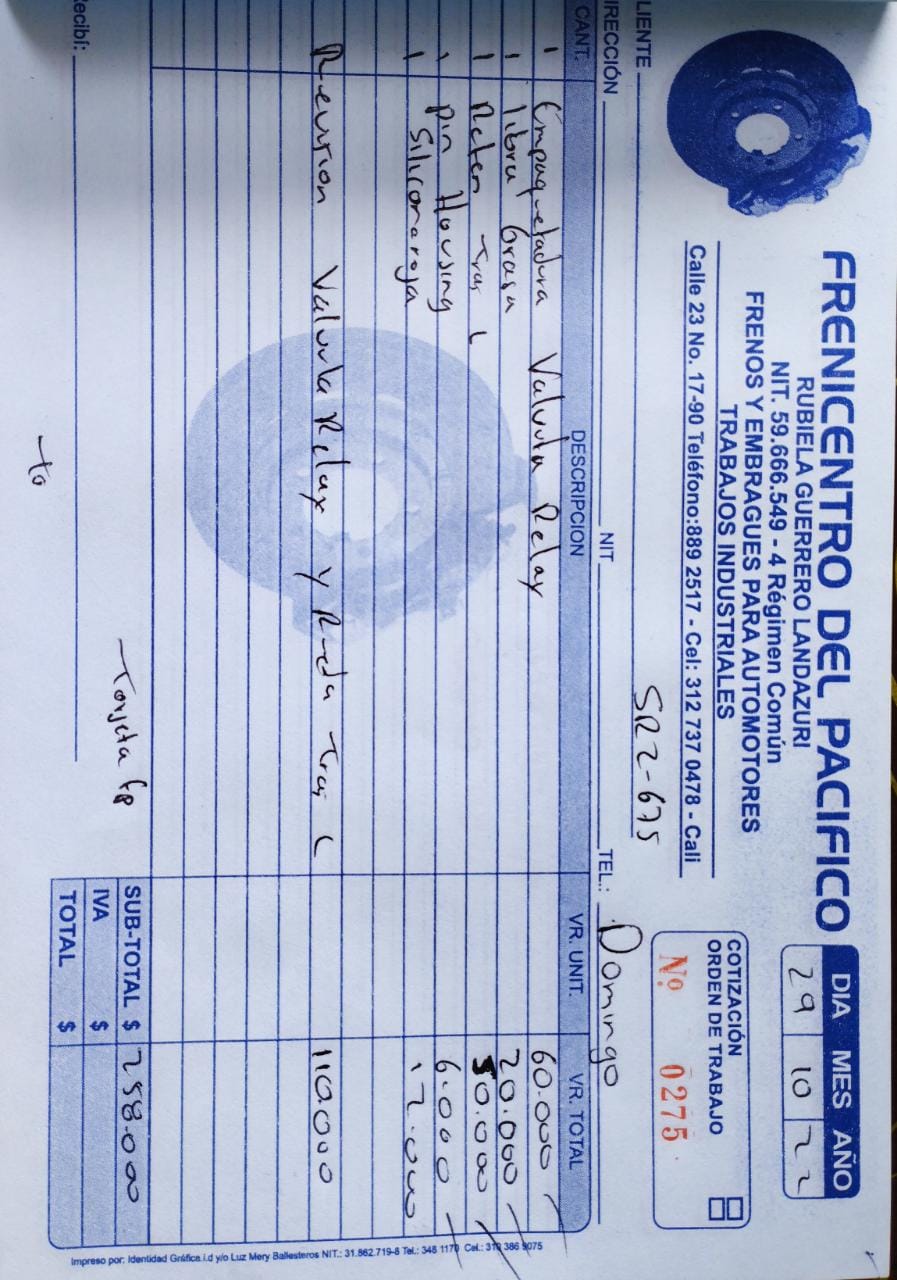 FRENICENTRO DEL PACIFICO
RUBIELA GUERRERO LANDAZURI
NIT. 59.666.549 - 4 Régimen Común
FRENOS Y EMBRAGUES PARA AUTOMOTORES
TRABAJOS INDUSTRIALES
Calle 23 No. 17-90 Teléfono:889 2517 - Cel: 312 737 0478 - Cali
DIA MES AÑO
29 10 22
COTIZACIÓN
ORDEN DE TRABAJO
Nº 0275
LIENTE SRZ-675
IRECCIÓN NIT TEL.: Domingo
CANT. DESCRIPCION VR. UNIT. VR. TOTAL
1 Empaquetadura Valvula Relay 60.000
1 libra Grasa 20.000
1 Reten Tras L 50.000
1 Pin Housing 6.000
1 Silicona roja 12.000
Revision Valvula Relax y Rueda Tras L 110.000
SUB-TOTAL $ 258.000
IVA $
TOTAL $
Tarjeta
ecibí:
Impreso por: Identidad Gráfica i.d y/o Luz Mery Ballesteros NIT.: 31.862.719-8 Tel.: 348 1170 Cel.: 310 386 9075